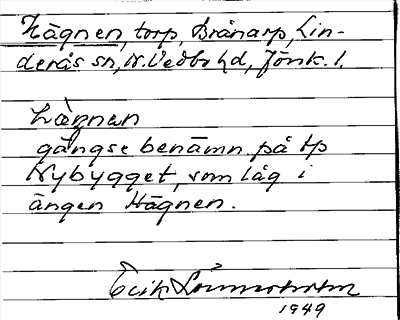 Hägnen, torp, Brånarp, Lin-
derås sn, N. Vedbo hd, Jönk. l.
Hägnen
gängse benämn. på tp
Nybygget, som låg i
ängen Hägnen.
Erik
1949